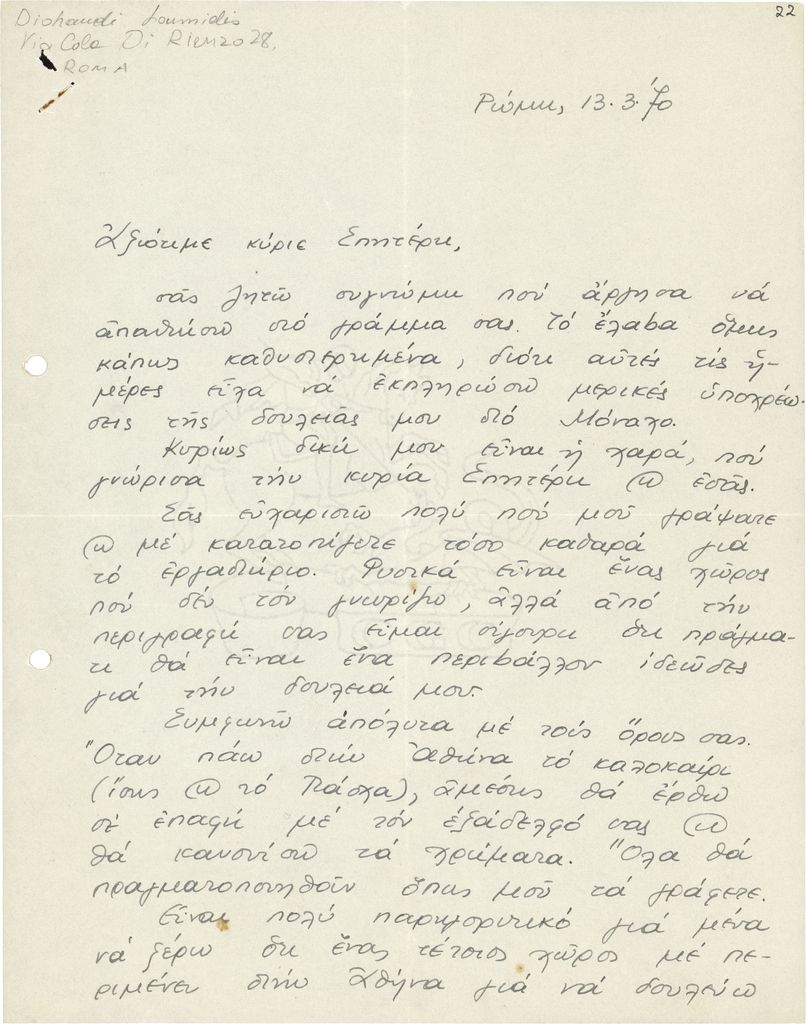 22
Diohandi Loumidis
Via Cola Di Rienzo 28,
ROMA
Ρώμη, 13.3.'70
Ἀξιότιμε κύριε Σπητέρη,
σᾶς ζητῶ συγνώμη πού ἄργησα νά
ἀπαντήσω στό γράμμα σας. Τό ἔλαβα ὅμως
κάπως καθυστερημένα, διότι αὐτές τίς ἡ-
μέρες εἶχα νά ἐκπληρώσω μερικές ὑποχρεώ-
σεις τῆς δουλειᾶς μου στό Μόναχο.
Κυρίως δική μου εἶναι ἡ χαρά, πού
γνώρισα τήν κυρία Σπητέρη ϗ ἐσᾶς.
Σᾶς εὐχαριστῶ πολύ πού μοῦ γράψατε
ϗ μέ κατατοπίζετε τόσο καθαρά γιά
τό ἐργαστήριο. Φυσικά εἶναι ἕνας χῶρος
πού δέν τόν γνωρίζω, ἀλλά ἀπό τήν
περιγραφή σας εἶμαι σίγουρη ὅτι πράγμα-
τι θά εἶναι ἕνα περιβάλλον ἰδεῶδες
γιά τήν δουλειά μου.
Συμφωνῶ ἀπόλυτα μέ τούς ὅρους σας.
Ὅταν πάω στήν Ἀθήνα τό καλοκαίρι
(ἴσως ϗ τό Πάσχα), ἀμέσως θά ἔρθω
σέ ἐπαφή μέ τόν ἐξάδελφό σας ϗ
θά κανονίσω τά χρήματα. Ὅλα θά
πραγματοποιηθοῦν ὅπως μοῦ τά γράφετε.
Εἶναι πολύ παρηγορητικό γιά μένα
νά ξέρω ὅτι ἕνας τέτοιος χῶρος μέ πε-
ριμένει στήν Ἀθήνα γιά νά δουλεύω